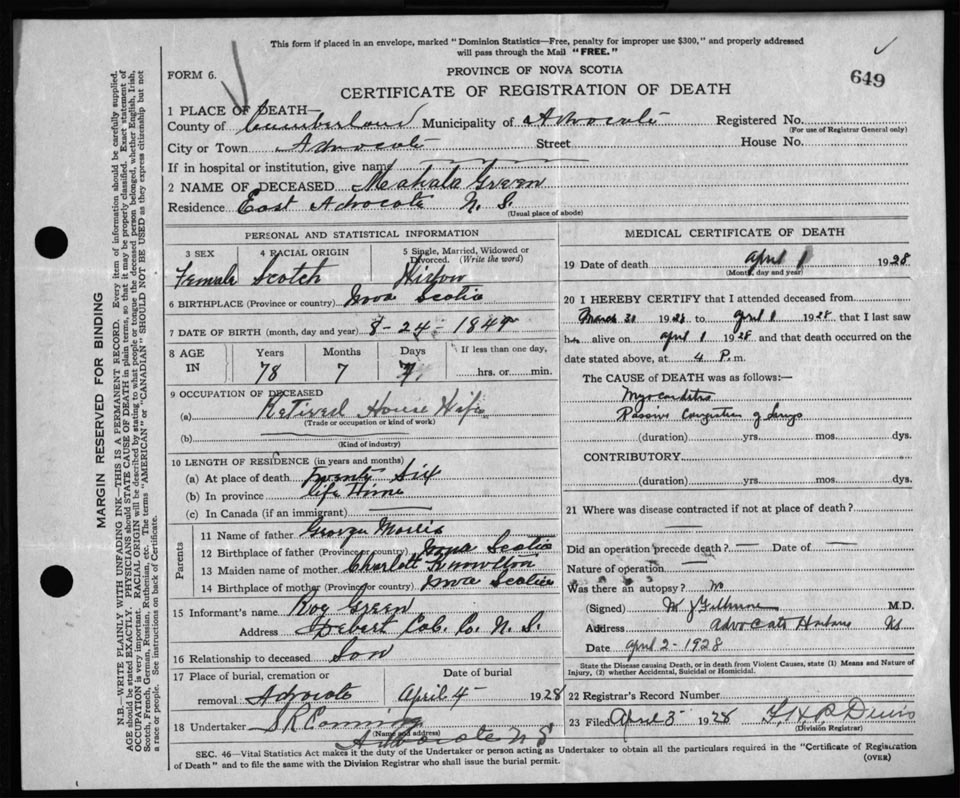 This form if placed in an envelope, marked "Dominion Statistics—Free, penalty for improper use $300," and properly addressed
will pass through the Mail "FREE."
FORM 6.
649
PROVINCE OF NOVA SCOTIA
CERTIFICATE OF REGISTRATION OF DEATH
1 PLACE OF DEATH—
County of Cumberland Municipality of Advocate Registered No.
(For use of Registrar General only)
City or Town Advocate Street House No.
If in hospital or institution, give name
2 NAME OF DECEASED Mahala Green
Residence East Advocate N. S.
(Usual place of abode)
PERSONAL AND STATISTICAL INFORMATION
3 SEX 4 RACIAL ORIGIN 5 Single, Married, Widowed or Divorced. (Write the word)
Female Scotch
6 BIRTHPLACE (Province or country) Nova Scotia
7 DATE OF BIRTH (month, day and year) 8-24-
8 AGE IN Years Months Days If less than one day,
78 7 7 hrs. or min.
9 OCCUPATION OF DECEASED
(a) Retired House Wife
(Trade or occupation or kind of work)
(b)
(Kind of industry)
10 LENGTH OF RESIDENCE (in years and months)
(a) At place of death Twenty Six
(b) In province life Time
(c) In Canada (if an immigrant)
Parents
11 Name of father George Morris
12 Birthplace of father (Province or country) Nova Scotia
13 Maiden name of mother Charlott Knowlton
14 Birthplace of mother (Province or country) Nova Scotia
15 Informant's name Roy Green
Address Debert Col. Co. N. S.
16 Relationship to deceased Son
17 Place of burial, cremation or removal Advocate Date of burial April 4 1928
18 Undertaker S R
(Name and address)
Advocate N S
MEDICAL CERTIFICATE OF DEATH
19 Date of death April 1 1928
(Month, day and year)
20 I HEREBY CERTIFY that I attended deceased from
March 31 1928 to April 1 1928 that I last saw
her alive on April 1 1928 and that death occurred on the
date stated above, at 4 P.m.
The CAUSE OF DEATH was as follows:
Myocarditis
Passive Congestion of Lungs
(duration) yrs. mos. dys.
CONTRIBUTORY
(duration) yrs. mos. dys.
21 Where was disease contracted if not at place of death?
Did an operation precede death? — Date of —
Nature of operation
Was there an autopsy? No
(Signed) M.D.
Address Advocate Harbour NS
Date April 2 - 1928
State the Disease causing Death, or in death from Violent Causes, state (1) Means and Nature of
Injury, (2) whether Accidental, Suicidal or Homicidal.
22 Registrar's Record Number
23 Filed April 5 1928
(Division Registrar)
SEC. 46—Vital Statistics Act makes it the duty of the Undertaker or person acting as Undertaker to obtain all the particulars required in the "Certificate of Registration
of Death" and to file the same with the Division Registrar who shall issue the burial permit.
(OVER)
MARGIN RESERVED FOR BINDING
N.B.—WRITE PLAINLY WITH UNFADING INK—THIS IS A PERMANENT RECORD. Every item of information should be carefully supplied.
AGE should be stated EXACTLY. PHYSICIANS should STATE CAUSE OF DEATH in plain terms, so that it may be properly classified. Exact statement of
OCCUPATION is very important. RACIAL ORIGIN will be described by stating to what people or tongue the deceased person belonged, whether English, Irish,
Scotch, French, German, Russian, Ruthenian, etc. The terms "AMERICAN" or "CANADIAN" SHOULD NOT BE USED as they express citizenship but not
a race or people. See instructions on back of Certificate.